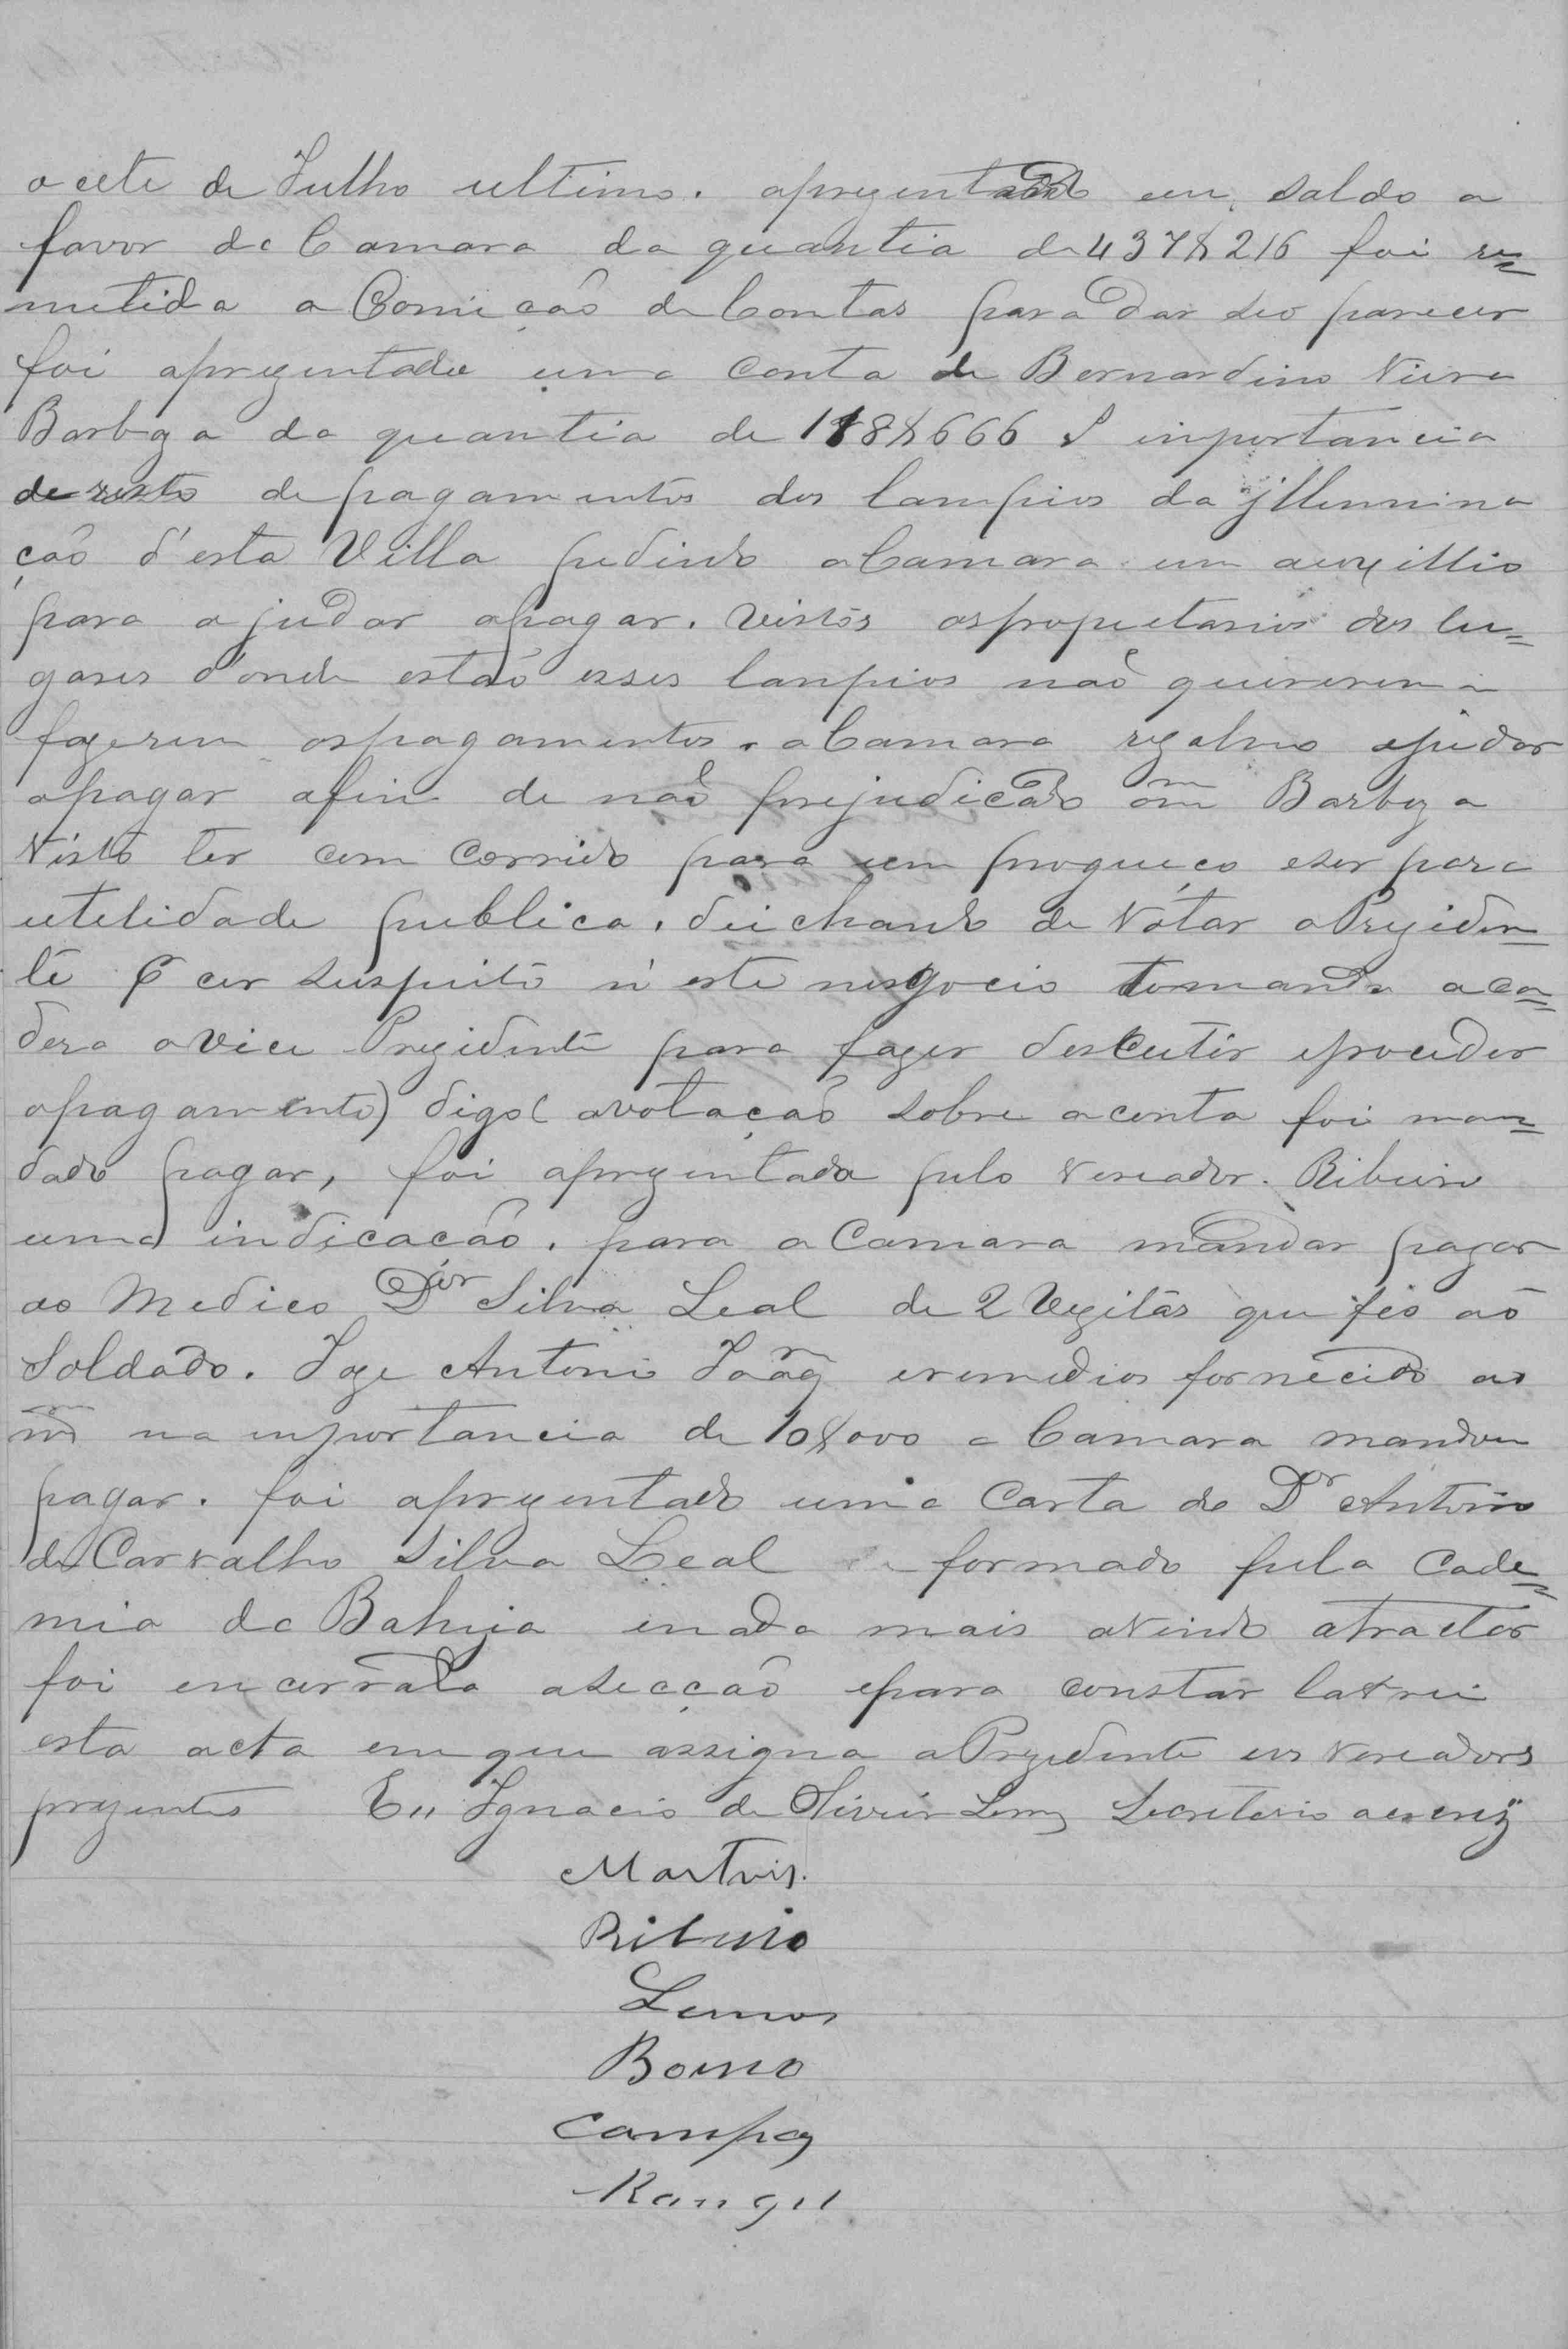 a cete de Julho ultimo. aprezentado um saldo a
favor da Camara da quantia de 437$216 foi re=
metida a Comicaõ de Contas para dar seo parecer
foi aprezentada uma conta de Bernardino Vieira
Barboza da quantia de 188$666 importancia
de resto de pagamentos dos lampios da jlleumina
caõ d'esta Villa pedindo a Camara um auxillio
para ajudar apagar. vistos os propietarios dos lu=
gares d'onde estaõ esses lanpios naõ quererem
fazerem os pagamentos. a Camara rezalveo ajudar
apagar afim de naõ prejudicado om Barboza
visto ter com corrido para um progueco eser para
utelidade publica. deichando de vótar o Preziden=
te P cer suspeito n'este nesgocio tomando aca=
dera o vice Prezidente para fazer descutir eproceder
opagamento) digo( avotaçaõ sobre aconta foi man=
dado pagar, foi aprezentada pelo vereador. Ribeiro
uma indicacaõ. para a Camara mandar pagar
ao Medico Dor Silva Leal de 2 Vezitas que fes aõ
Soldado. Joze Antoni eremedios fornecido ao
mo na inportancia de 10$000 a Camara mandou
pagar. foi aprezentado uma Carta do Dr Antonio
de Carvalho Silva Leal formado pela Cade=
mia da Bahia enada mais avindo atractar
foi encerrada asecçaõ epara constar lavrei
esta acta emque assigna o Prezidente eos vereadores
prezentes Eu Ignacio de Oliveira Lemos Secretario aescrevy
Martins.
Ribeiro
Lemos
Bueno
Campos
Rangel